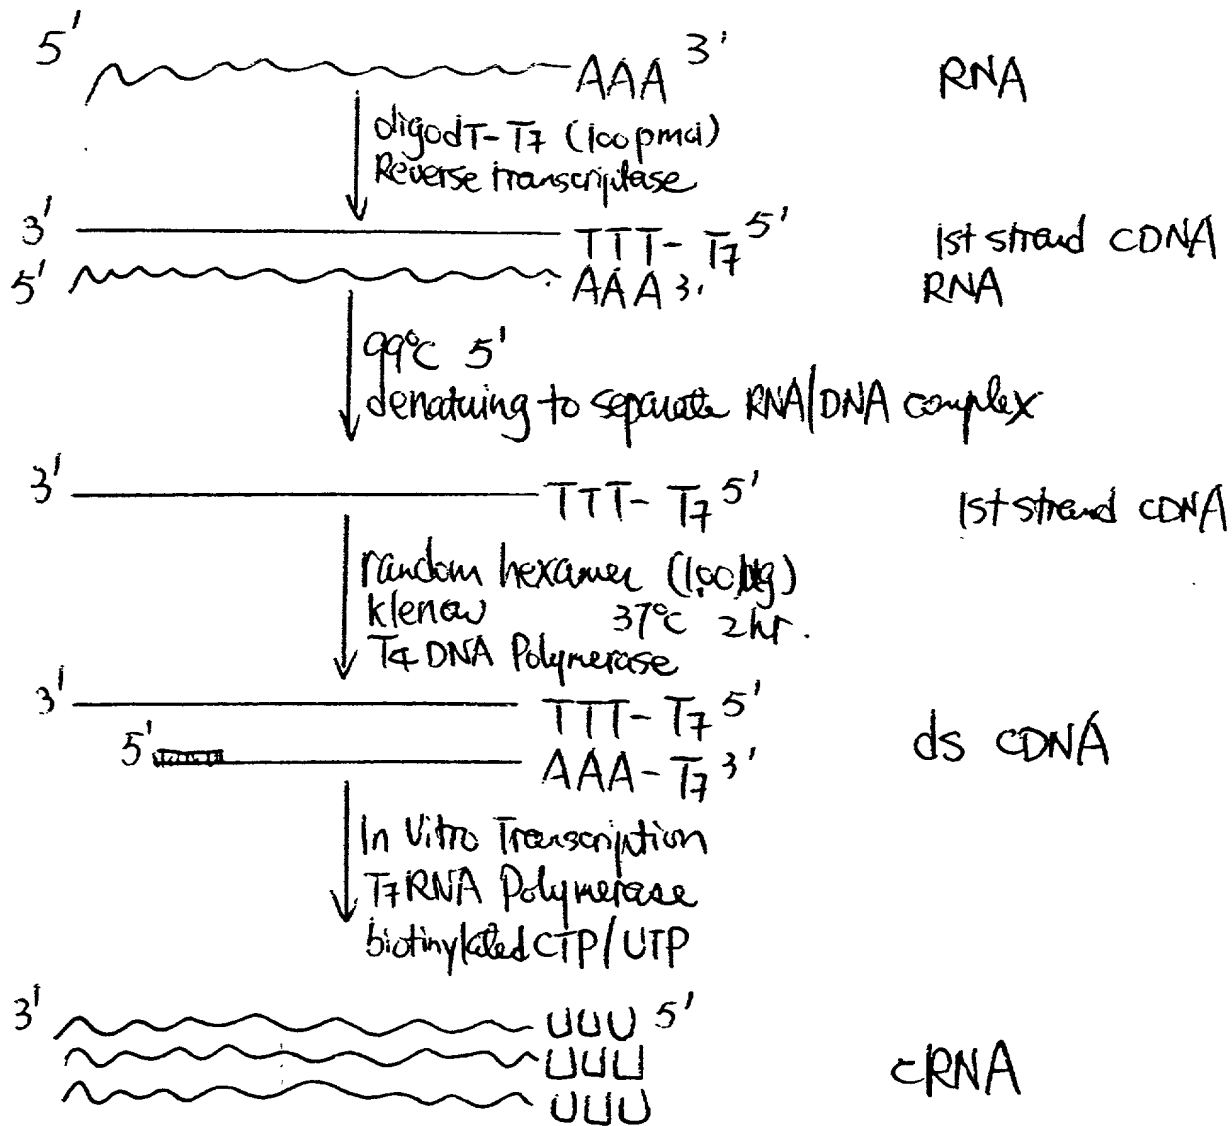 5' AAA 3' RNA
oligodT-T7 (100pmol)
Reverse transcriptase
3' TTT-T7 5' 1st strand cDNA
5' AAA 3' RNA
99°C 5'
denaturing to separate RNA/DNA complex
3' TTT-T7 5' 1st strand cDNA
random hexamer
klenow 37°C 2hr.
T4 DNA Polymerase
3' TTT-T7 5'
ds cDNA
5' AAA-T7 3'
In Vitro Transcription
T7 RNA Polymerase
biotinylated CTP/UTP
3' UUU 5'
UUU cRNA
UUU